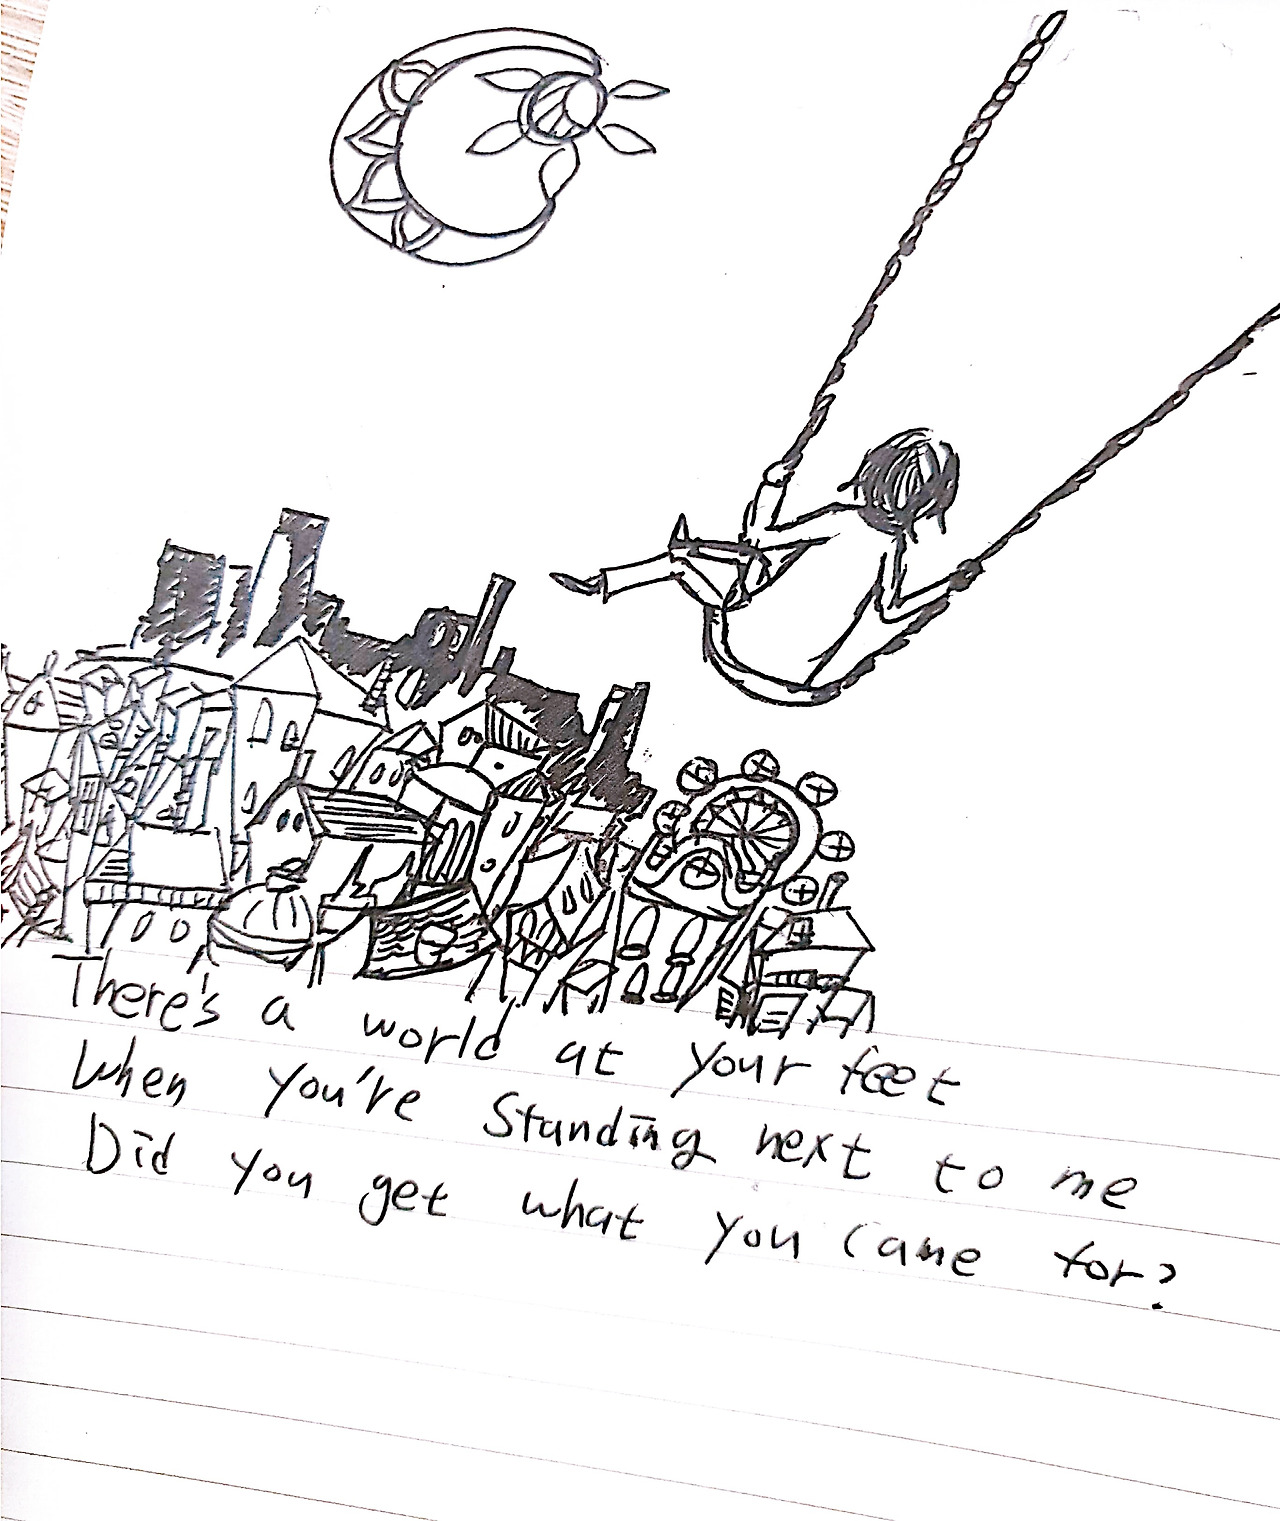 There's a world at your feet
When you're Standing next to me
Did you get what you came for?